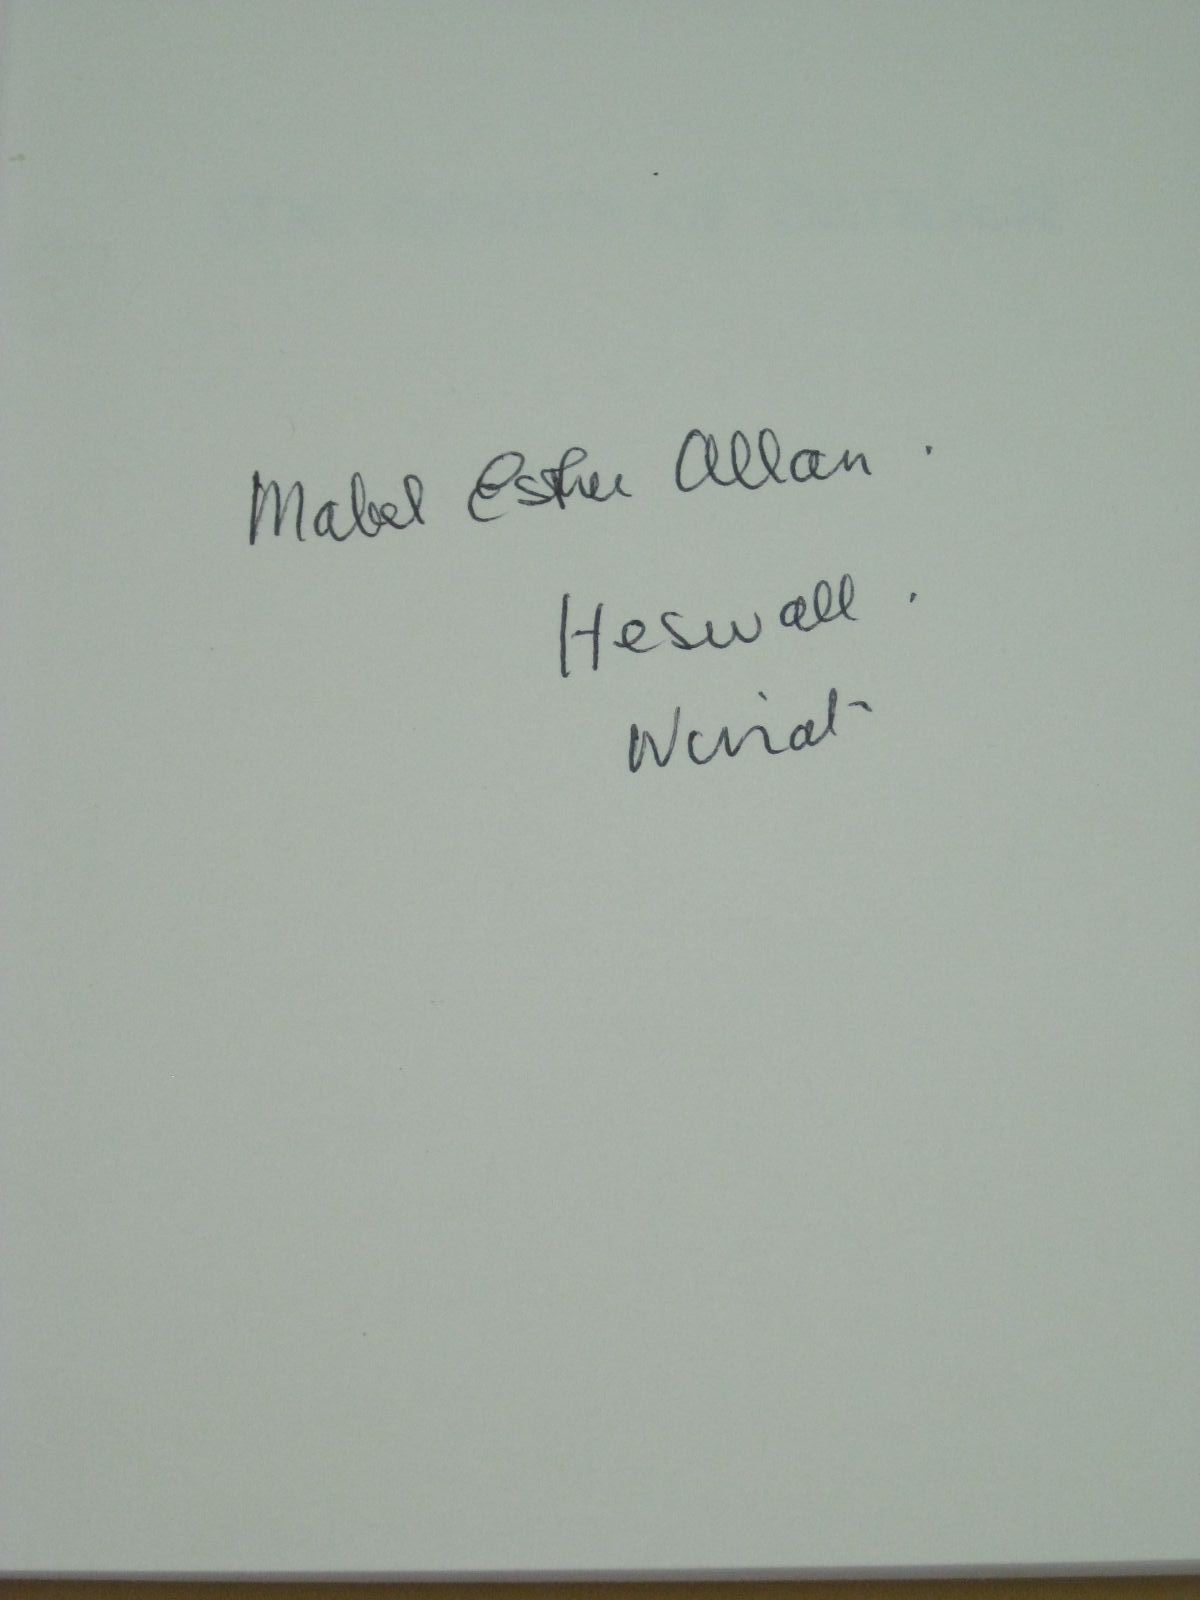 Mabel Esther Allan.
Heswall.
Wirral